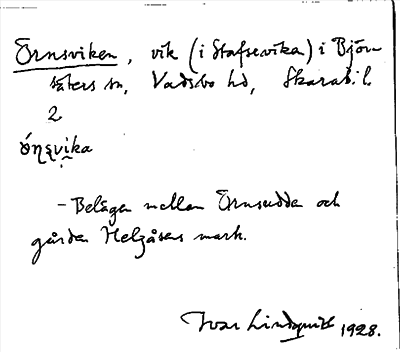 Örnsviken, vik (i Stafsevika) i Björ
säters sn, Vadsbo hd, Skarab. l.
2
ǿɳʂvika
– Belägen mellan Örnsudde och
gården Helgåsens mark.
Ivar Lindquist 1928.